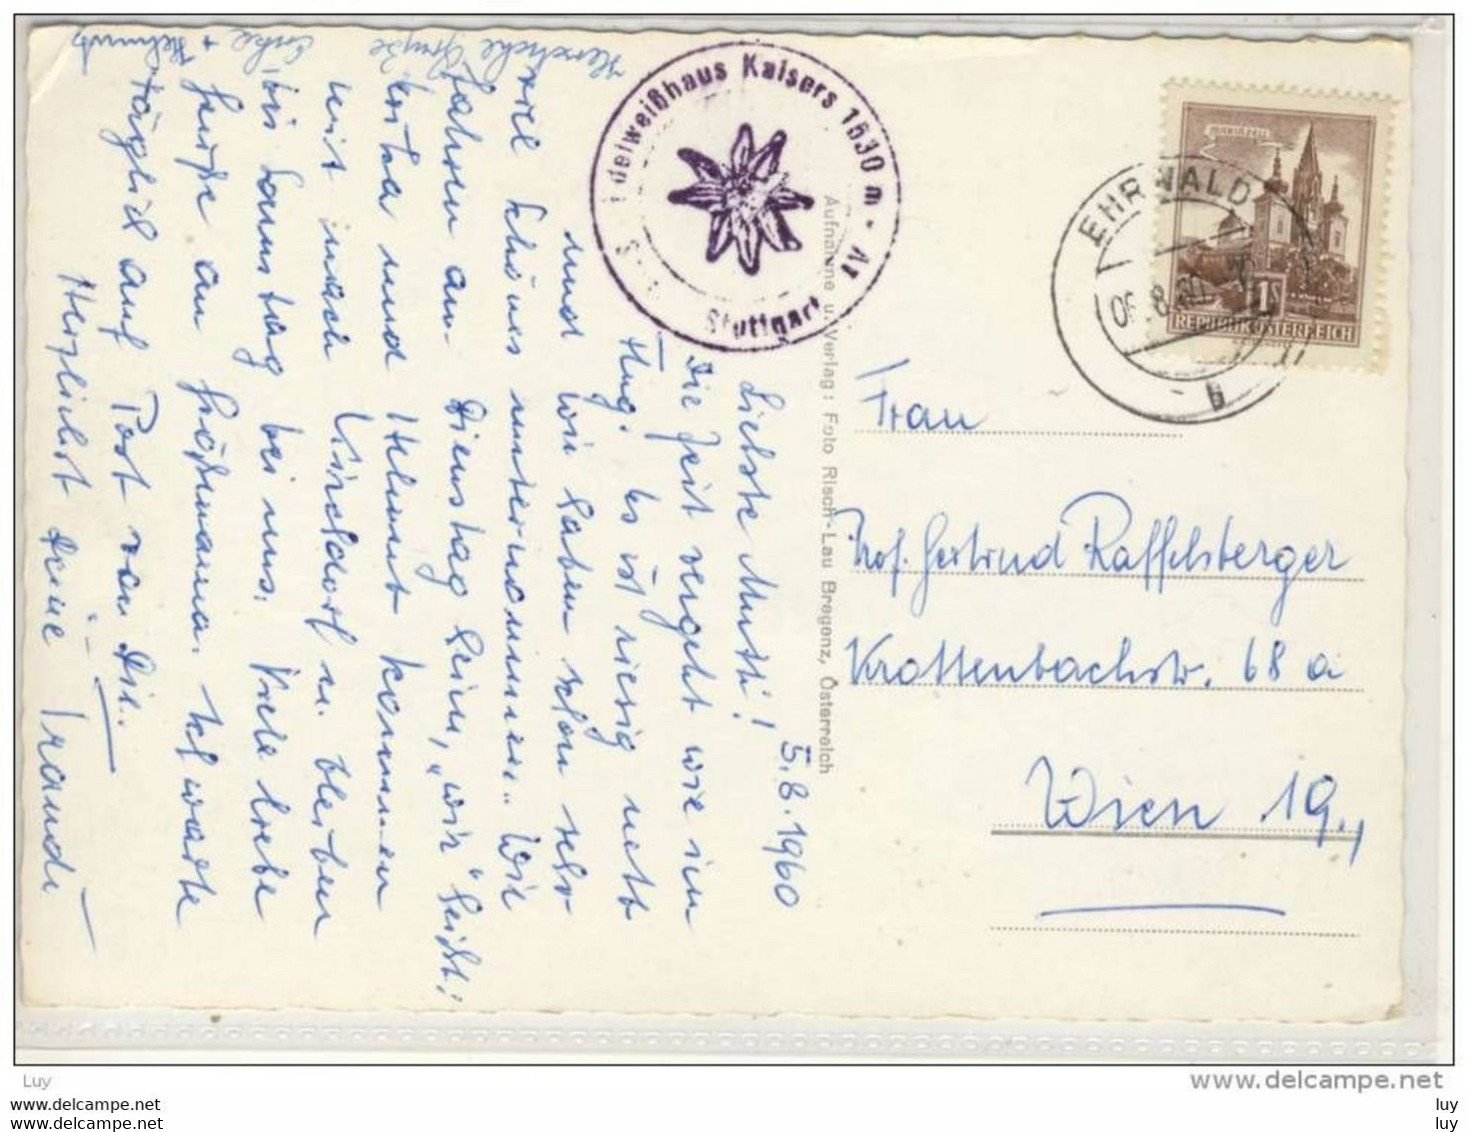 5.8.1960
Liebste Mutti!
Die Zeit vergeht wie im
Flug. Es ist riesig nett
und wir haben schon sehr
viel schönes unternommen. Wie
Dienstag heim, "wir" heißt:
Erika und Helmut kommen
mit nach Kirchdorf u. bleiben
bis Samstag bei uns. Viele liebe
Grüße an Großmama. Ich warte
täglich auf Post von Dir.
Herzlichst Deine Traudi
Herzliche Grüße
+ Helmut
Edelweißhaus Kaisers 1530 m
Stuttgart
Aufnahme u. Verlag: Foto Risch-Lau Bregenz, Österreich
MARIAZELL
1S
REPUBLIK ÖSTERREICH
EHRWALD
06.8.60
b
Frau
Prof. Gertrud Raffelsberger
Krottenbachstr. 68 a
Wien 19.,
Luy
www.delcampe.net
www.delcampe.com
www.delcampe.com
luy
luy